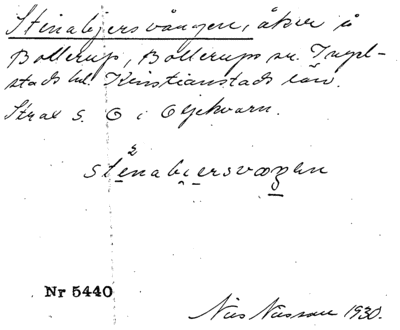 Stenabjersvången, åker å
Bollerup, Bollerups sn. Ingel-
stads hd. Kristianstads län.
Strax S. O i Oljekvarn.
stenabjersvaŋen
Nr 5440
Nils Nilsson 1930.